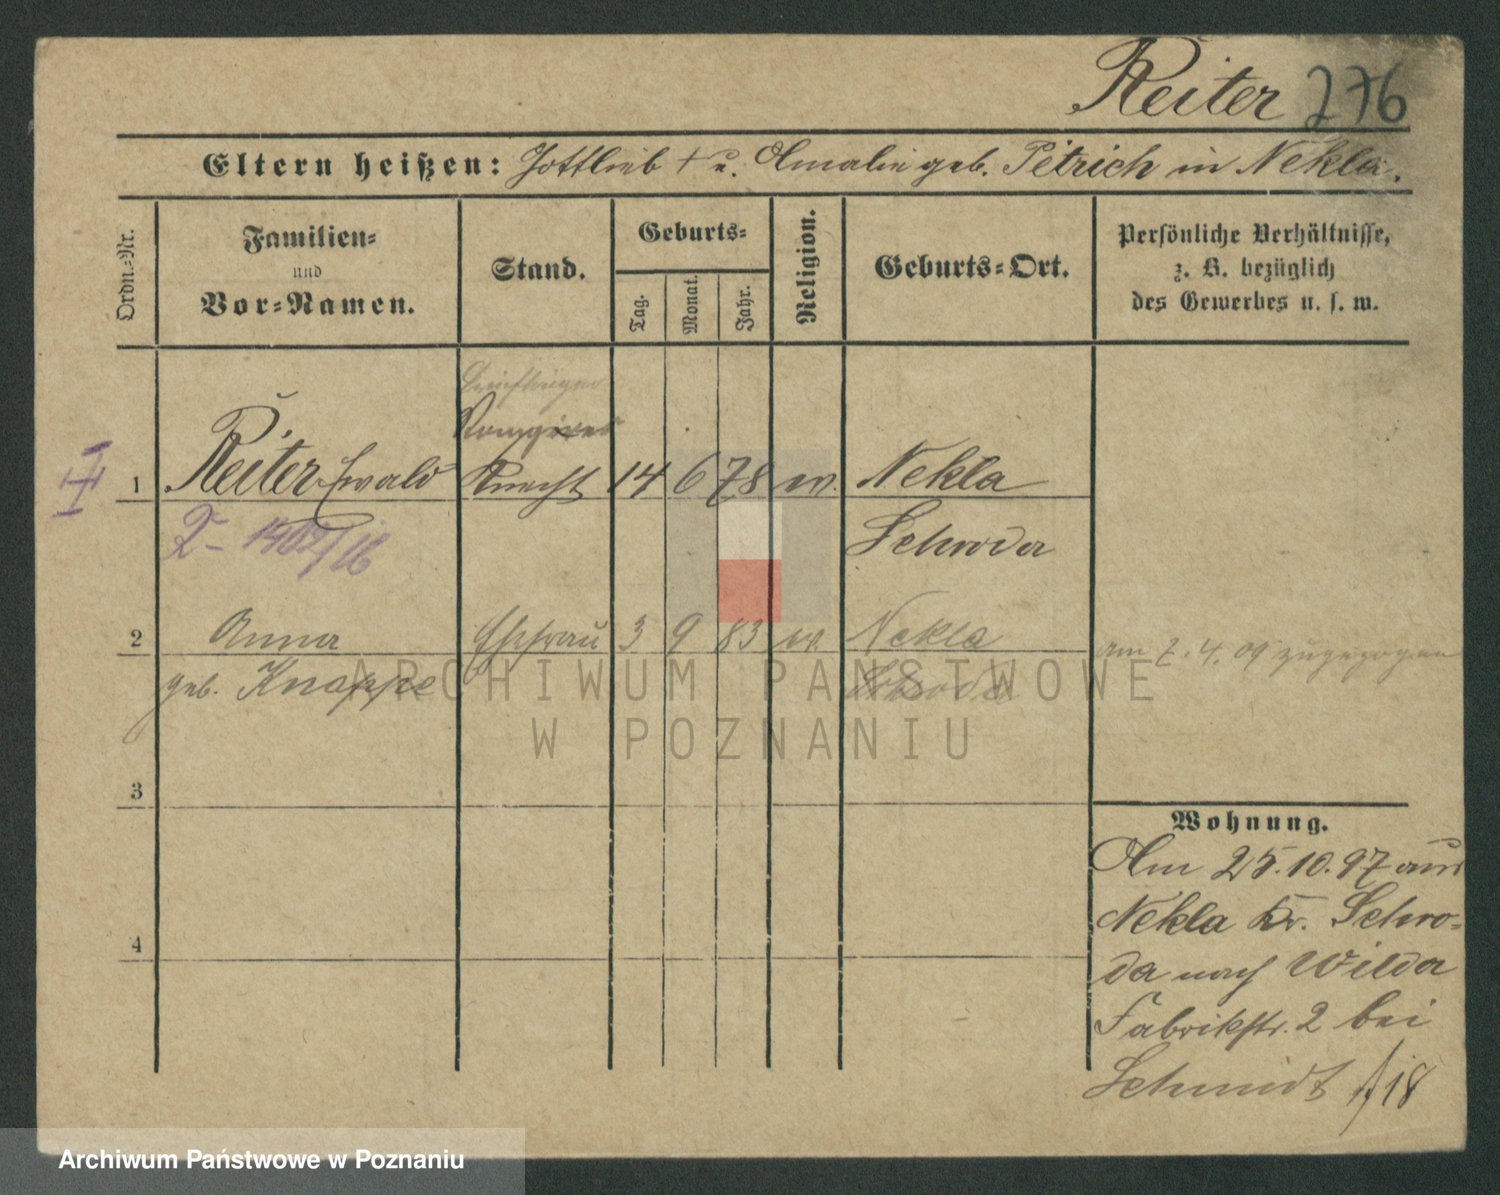 Reiter 276
Eltern heißen: Gottlieb † u. Amalie geb. Petrich in Nekla.
Ordn.-Nr.
Familien-
und
Vor-Namen.
Stand.
Geburts-
Tag.
Monat.
Jahr.
Religion.
Geburts-Ort.
Persönliche Verhältnisse,
z. B. bezüglich
des Gewerbes u. s. w.
1 Reiter Ewald Knecht 14 6 78 ev. Nekla
Schroda
2 Anna Ehefrau 3 9 83 ev. Nekla am 7.4.09 zugezogen
geb. Knappe Schroda
3
4
Wohnung.
Am 25.10.97 aus
Nekla Kr. Schro-
da nach Wilda
Fabrikstr. 2 bei
Schmidt
ARCHIWUM PAŃSTWOWE
W POZNANIU
Archiwum Państwowe w Poznaniu